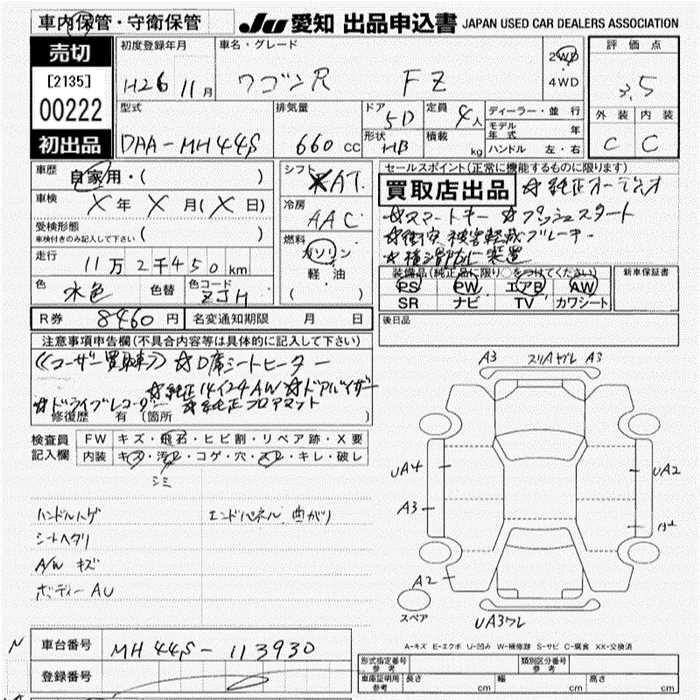 車内保管・守衛保管
JU 愛知 出品申込書 JAPAN USED CAR DEALERS ASSOCIATION
売切
[2135]
00222
初出品
初度登録年月
H26 11月
車名・グレード
ワゴンR FZ
2WD
4WD
評価点
3.5
外装 内装
C C
型式
DAA-MH44S
排気量
660 CC
ドア
5D
定員
4人
形状
HB
積載
kg
ディーラー・並行
モデル年式 年
ハンドル 左・右
車歴
自家用・( )
車検
X年 X月(X日)
受検形態
車検付きのみ記入して下さい ( )
走行
11万2千450km
色
水色
色替
色コード
ZJH
シフト
AT
冷房
AAC
燃料
ガソリン
軽・油
( )
セールスポイント(正常に機能するものに限ります)
買取店出品 ☆純正オーディオ
☆スマートキー ☆プッシュスタート
☆衝突被害軽減ブレーキ
☆横滑防止装置
装備品(純正品に限り○をつけてください)
PS PW エアB AW
SR ナビ TV カワシート
新車保証書
R券 8460円 名変通知期限 月 日
後日品
注意事項申告欄(不具合内容等は具体的に記入して下さい)
《ユーザー買取車》 ☆D席シートヒーター
☆純正14インチAW ☆ドアバイザー
☆ドライブレコーダー ☆純正フロアマット
修復歴 有 (箇所
検査員
記入欄
FW キズ・飛石・ヒビ割・リペア跡・X要
内装 キズ・汚レ・コゲ・穴・スレ・キレ・破レ
シミ
ハンドルハゲ エンドパネル曲がり
シートヘタリ
A/W キズ
ボディーAU
A3 スリAゲレ A3
UA4
UA2
A3
A2
UA3ワレ
スペア
A-キズ E-エクボ U-凹み W-補修跡 S-サビ C-腐食 XX-交換済
N
車台番号 MH44S-113930
登録番号
形式指定番号
参考
類別区分番号
参考
車庫証明用
参考
長さ cm 幅 cm 高さ cm